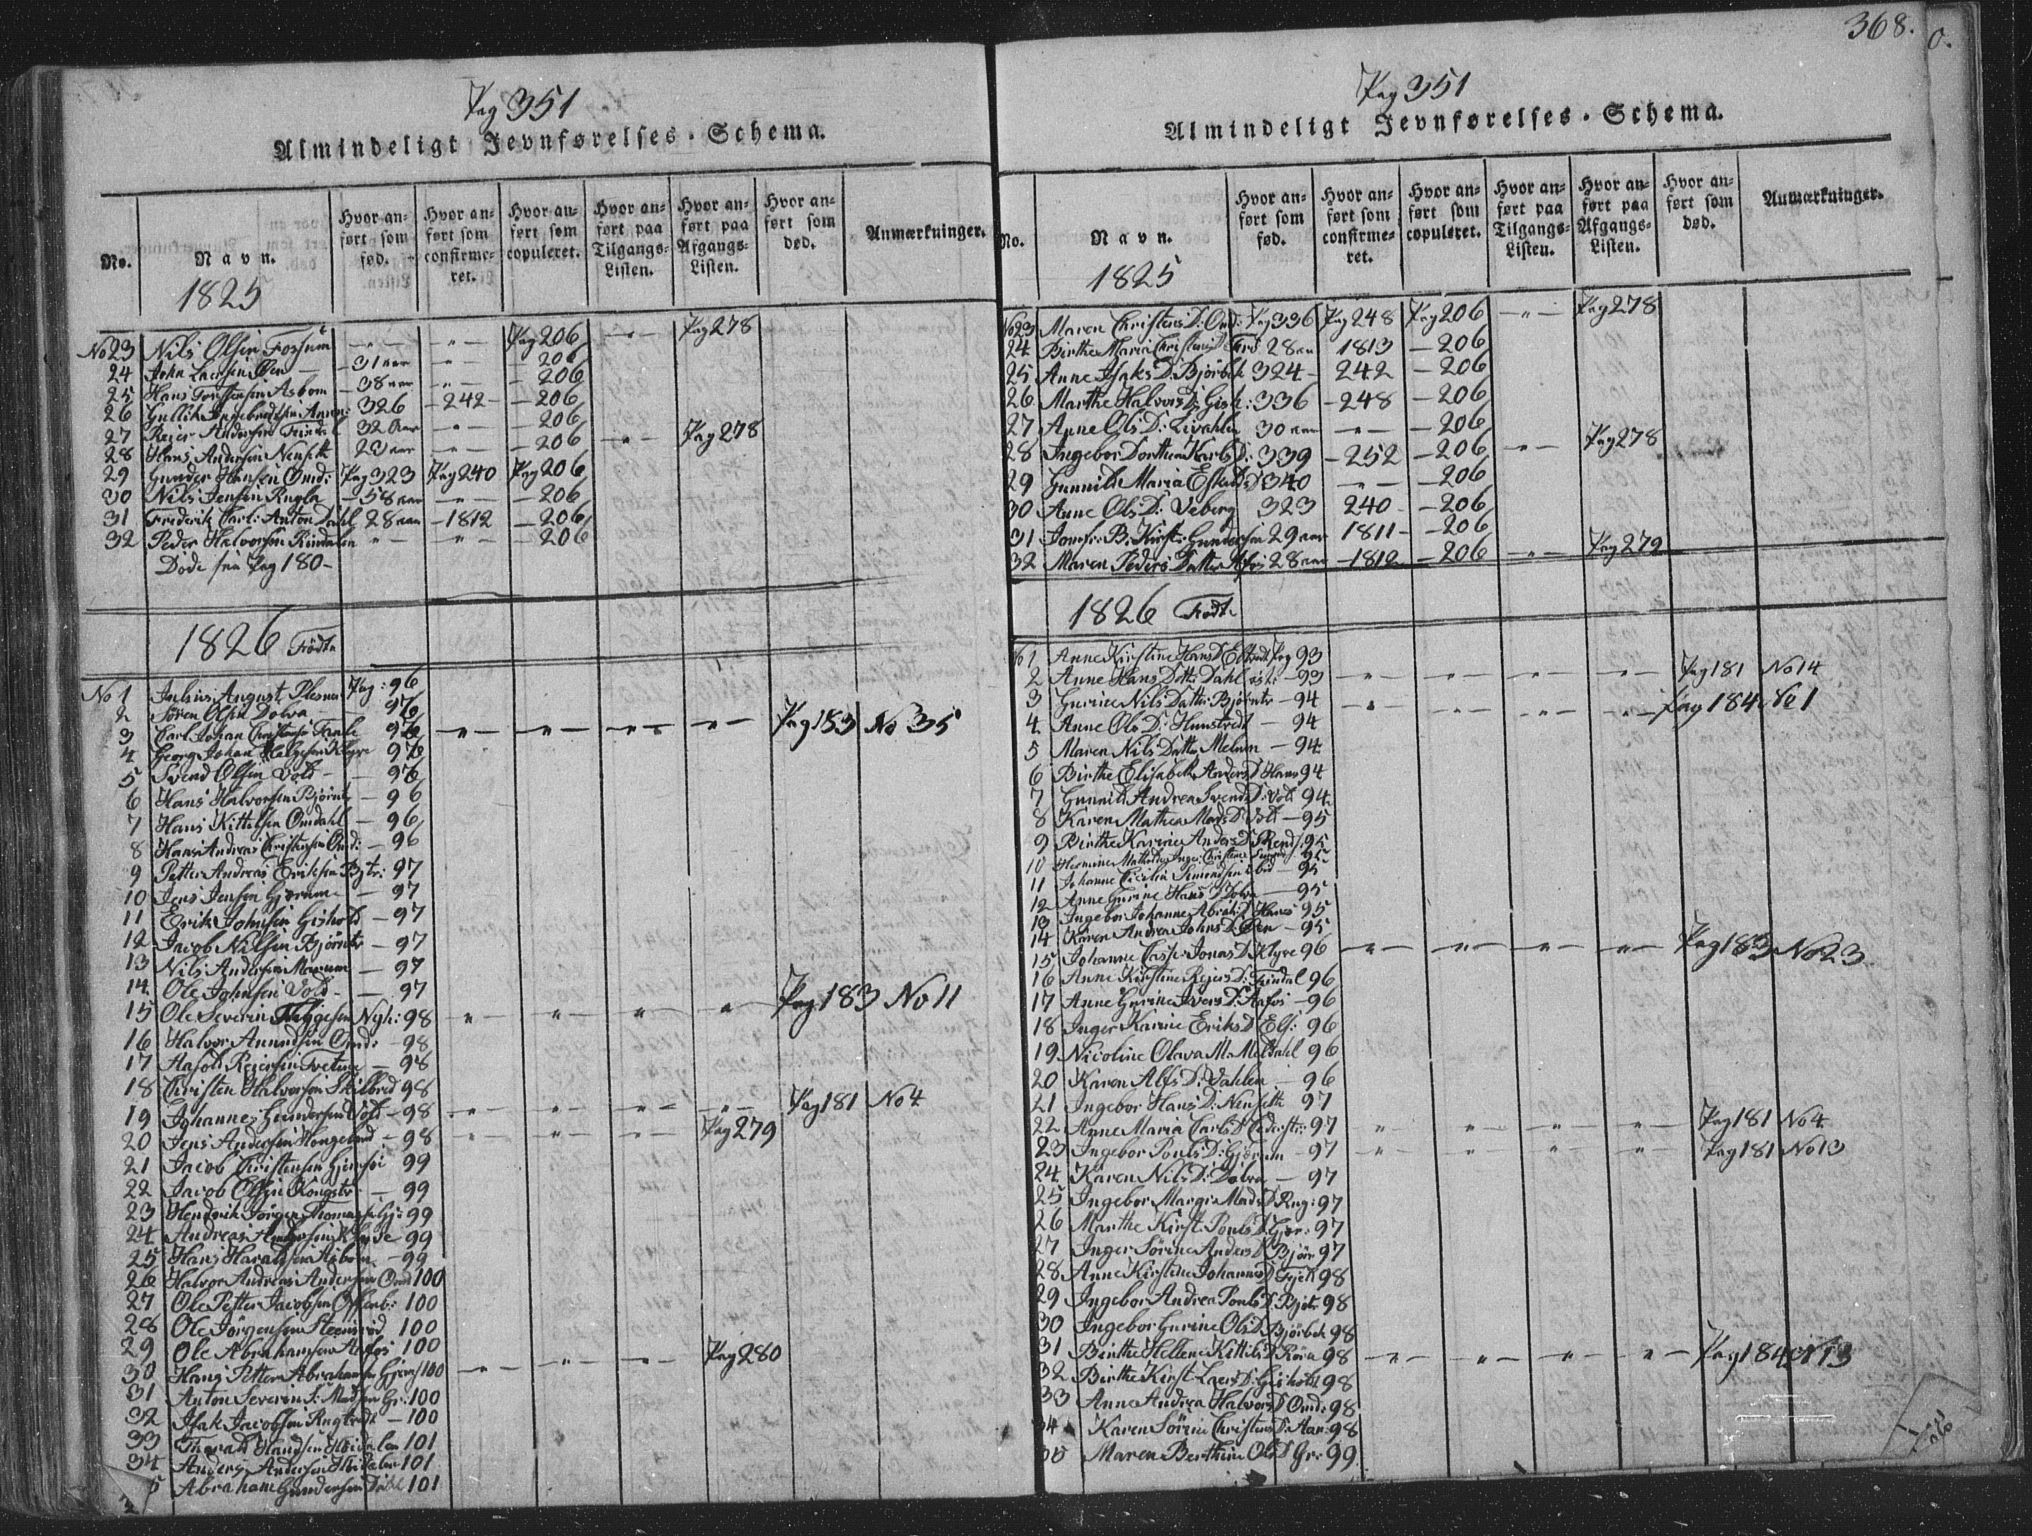 368.
Pag 351
Almindeligt Jevnførelses-Schema.
No.
Navn.
Hvor anført som fød.
Hvor anført som confirmeret.
Hvor anført som copuleret.
Hvor anført paa Tilgangs-Listen.
Hvor anført paa Afgangs-Listen.
Hvor anført som død.
Anmærkninger.
1825
No 23 Nils Olsen Fossum - " - - " - Pag 206 - " - Pag 278
24 John Larsen Øen - 31 aar - " - - 206
25 Hans Torstensen Asbom - 38 aar - " - - 206
26 Gullik Ingebretsen 326 - 242 - - 206
27 Reier Andersen Trindal 32 Aar - " - - 206
28 Hans Andersen Nenseth 23 aar - " - - 206 - " - Pag 278
29 Gunder Hansen Omd: Pag 323 Pag 240 Pag 206
30 Nils Jensen Rugla - 58 aar - " - - 206
31 Frederik Carl: Anton Dahl 28 aar - 1812 - 206
32 Peder Halvorsen Rindalen " - " - - 206
Døde see Pag 180 -
1826 Fødte
No 1 Julius August Plesner Pag: 96
2 Søren Olsen Dolva 96
3 Carl Johan 96 - " - - " - - " - - " - Pag 183 No 35
4 Georg Johan Helgesen Klyve 96
5 Svend Olsen Vold - - 96
6 Hans Halvorsen Bjørntv - 96
7 Hans Kittilsen Omdahl - 96
8 Hans Andreas Christensen Omd: - 96
9 Petter Andreas Eriksen Bjtv: 97
10 Jens Jensen Gjerum - 97
11 Erik Johnsen Gisholt - 97
12 Jacob Nilsen Bjørntv - 97
13 Nils Andersen Mærum - 97
14 Ole Johnsen Vold - - 97
15 Ole Severin Helgesen Nyh: 98 " - " - " - " - Pag 183 No 11
16 Halvor Amundsen Omd: - 98
17 Hafold Reiersen Tveten - 98
18 Christen Halvorsen Skilbred 98
19 Johannes Gundersen Vold - 98 - " - " - " - " - Pag 181 No 4
20 Jens Andersen Hougelund - 98 " - " - " - Pag 279
21 Jacob Christensen Hjemsøi 99
22 Jacob Olsen Kongstv - 99
23 Hendrik Jørgen Thomasen Gj: 99
24 Andreas Andersen Klyve - 99
25 Hans Haraldsen Asbom - 99
26 Halvor Andreas Andersen Omd 100
27 Ole Petter Jacobsen 100
28 Ole Jørgensen Steensrød 100
29 Ole Abrahamsen Aafos 100
30 Hans Petter Abrahamsen Gjem 100 - " - " - " - Pag 280
31 Anton Severin S: Madsen Gr: 100
32 Isak Jacobsen Rugtvedt - 100
33 Tharald Hansen Heidalen 101
34 Anders Andersen Heidalen 101
5 Abraham Gundersen Dahl 101
Pag 351
Almindeligt Jevnførelses-Schema.
No.
Navn.
Hvor anført som fød.
Hvor anført som confirmeret.
Hvor anført som copuleret.
Hvor anført paa Tilgangs-Listen.
Hvor anført paa Afgangs-Listen.
Hvor anført som død.
Anmærkninger.
1825
No 23 Maren Christens D: Omd: Pag 336 Pag 248 Pag 206 - " - Pag 278
24 Birthe Maria Christens D 28 aar 1813 - 206
25 Anne Isaks D: Bjørbek 324 - 242 - 206
26 Marthe Halvors D: Gish: 336 - 248 - 206
27 Anne Ols D: 30 aar - " - - 206
28 Ingebor Dorthea Karls D: 339 - 252 - 206 - " - Pag 278
29 Gunnild Maria D 340 - " - - 206
30 Anne Ols D: Veberg 323 240 - - 206
31 Jomfr: B: Kirst: Gundersen 29 aar 1811 - - 206
32 Maren Peders Datter Afos 28 aar - 1812 - 206 - " - Pag 279
1826 Fødte
No 1 Anne Kirstine Hans D Pag 93
2 Anne Hans Datt: Dahl - 93 - " - " - " - " - Pag 181 No 14
3 Gurine Nils Datter Bjørntv - 94 - " - " - " - " - Pag 184 No 1
4 Anne Ols D: Humstvedt - 94
5 Maren Nils Datter Melum - 94
6 Birthe Elisabeth Anders D Hans 94
7 Gunnild Andrea Svends D: Vold 94
8 Karen Mathea Mads D: Vold - 95
9 Birthe Karine Anders D 95
10 Hermine Mathilde Inger Christine 95
11 Johanne Cicilia Simonsen - 95
12 Anne Gurine Hans D Dolva - 95
13 Ingebor Johanne Abrah: D Hans 95
14 Karen Andrea Johns D: Øen - 95
15 Johanne Casp: Jonas D: Klyve 96 - " - " - " - " - Pag 183 No 23
16 Anne Kirstine Rejers D: Trindal 96
17 Anne Gurine Ivers D: Aafos - 96
18 Inger Karine Eriks D Elf: 96
19 Nicoline Olava M: Meldahl 96
20 Karen Alfs D: Dahlen - 96
21 Ingebor Hans D: Nenseth 97
22 Anne Maria Carls D 97 " - " - " - " - Pag 181 No 4
23 Ingebor Pouls D: Gjerum - 97 " - " - " - " - Pag 181 No 13
24 Karen Nils D: Dolva - 97
25 Ingebor Margr: Mads D Rug: 97
26 Marthe Kirst: Pouls D Gjer: 97
27 Inger Sørine Anders D Bjørn 97
28 Anne Kirstine Johannes D 98
29 Ingebor Andrea Pouls D: Bjntv 98
30 Ingebor Gurine Ols D: Bjørbek 98
31 Birthe Hellene Kittils D Røra 98 - " - " - " - " - Pag 184 No 13
32 Birthe Kirst: Lars D: Gisholt 98
33 Anna Andrea Halvors D Omd: 98
34 Karen Sørine Christens D: Aar: 98
35 Maren Berthine Ols D Gr: 99